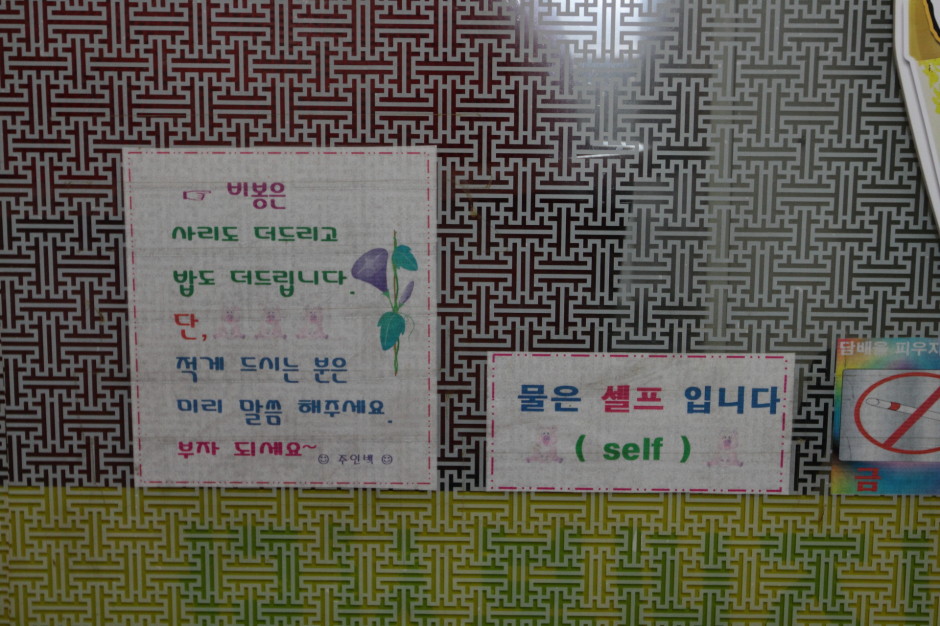 ☞ 비봉은
사리도 더드리고
밥도 더드립니다.
단,
적게 드시는 분은
미리 말씀 해주세요.
부자 되세요~
☺ 주인백 ☺
물은 셀프 입니다
( self )
담배를 피우지
금